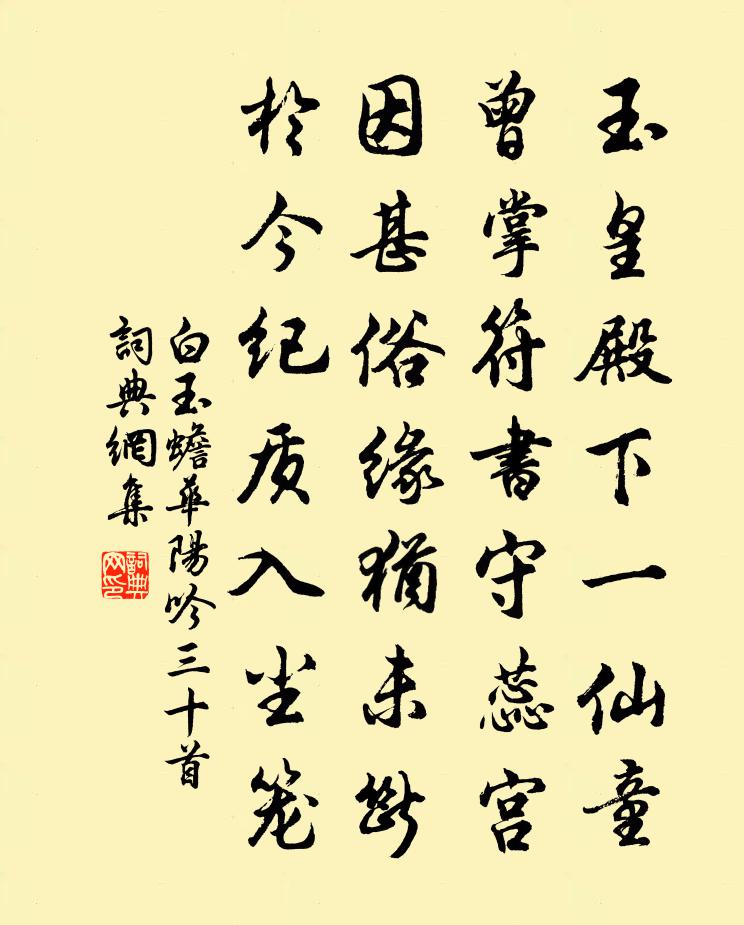 玉皇殿下一仙童
曾掌符書守蕊宫
因甚俗緣猶未斷
於今紀质入尘笼
白玉蟾華陽吟三十首
詞典網集
詞典网印